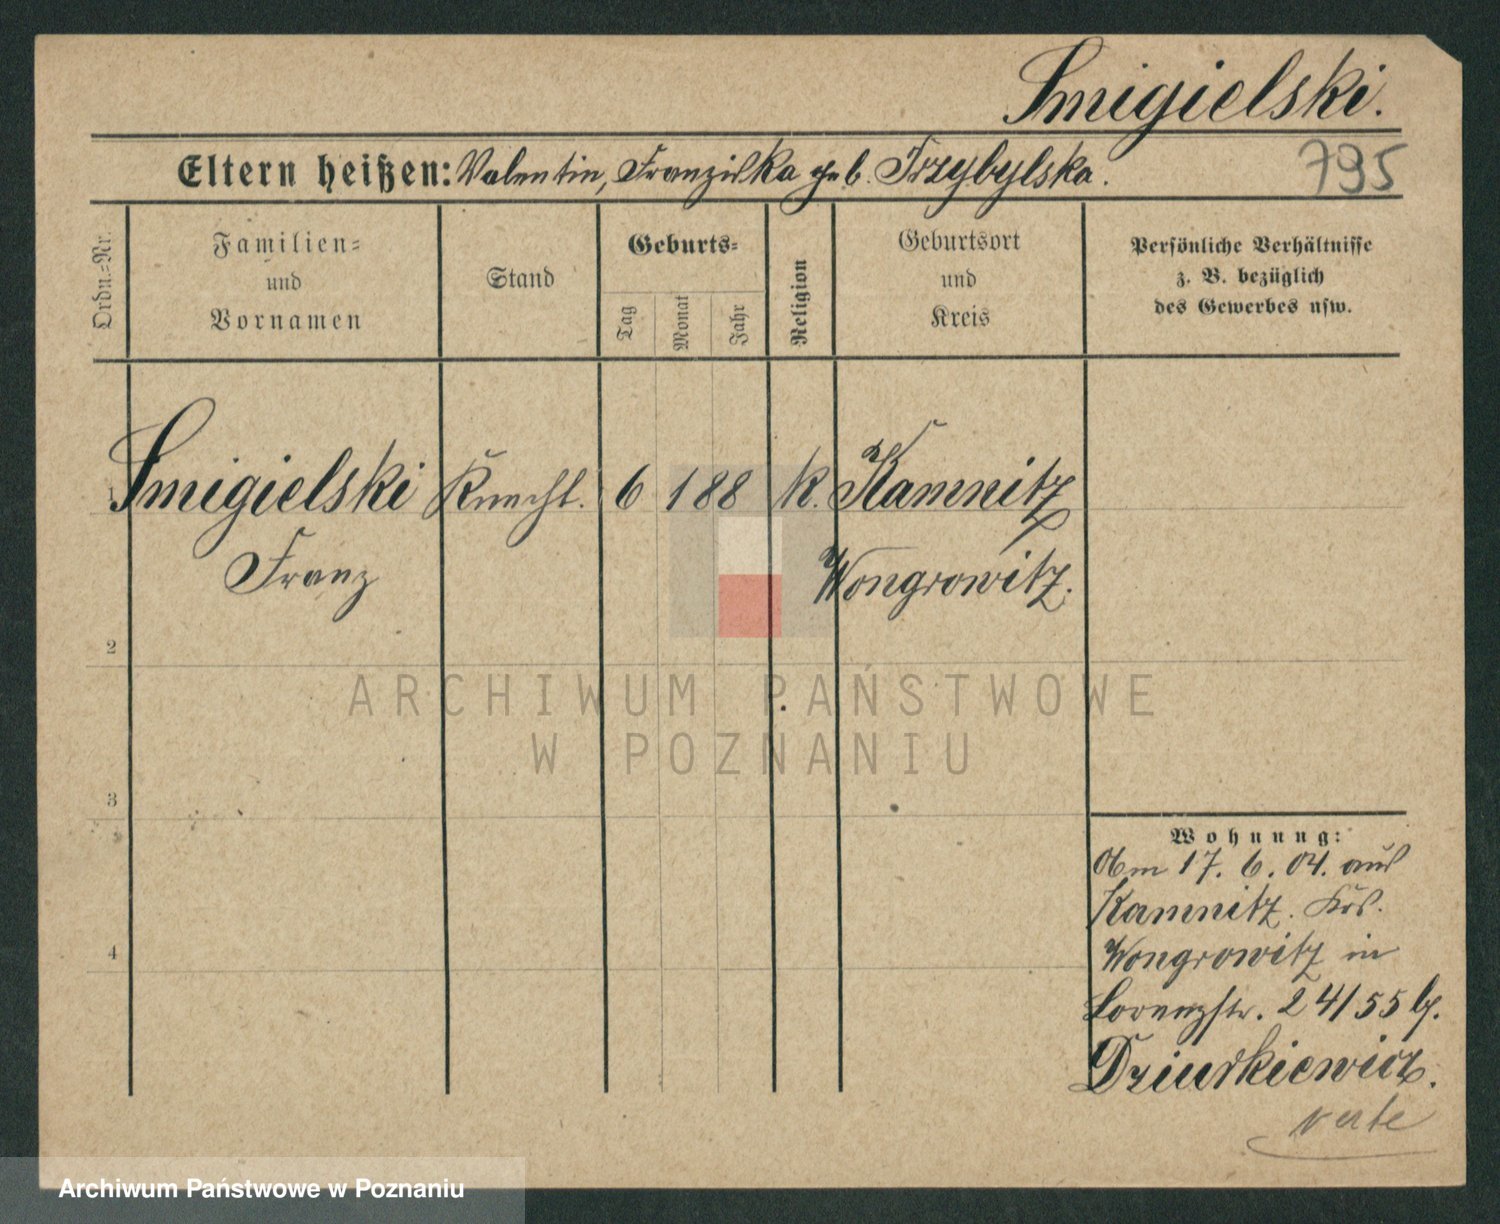 Smigielski.
Eltern heißen: Valentin, Franziska geb. Trzybylska.
795
Ordn.=Nr.
Familien=
und
Vornamen
Stand
Geburts=
Tag
Monat
Jahr
Religion
Geburtsort
und
Kreis
Persönliche Verhältnisse
z. B. bezüglich
des Gewerbes usw.
1 Smigielski Knecht. 6 1 88 k. Kamnitz
Franz Wongrowitz.
2
3
4
Wohnung:
Am 17. 6. 04. aus
Kamnitz. Krs.
Wongrowitz in
Lorenzstr. 24/55 b.
Dziurkiewicz.
verte
ARCHIWUM PAŃSTWOWE
W POZNANIU
Archiwum Państwowe w Poznaniu